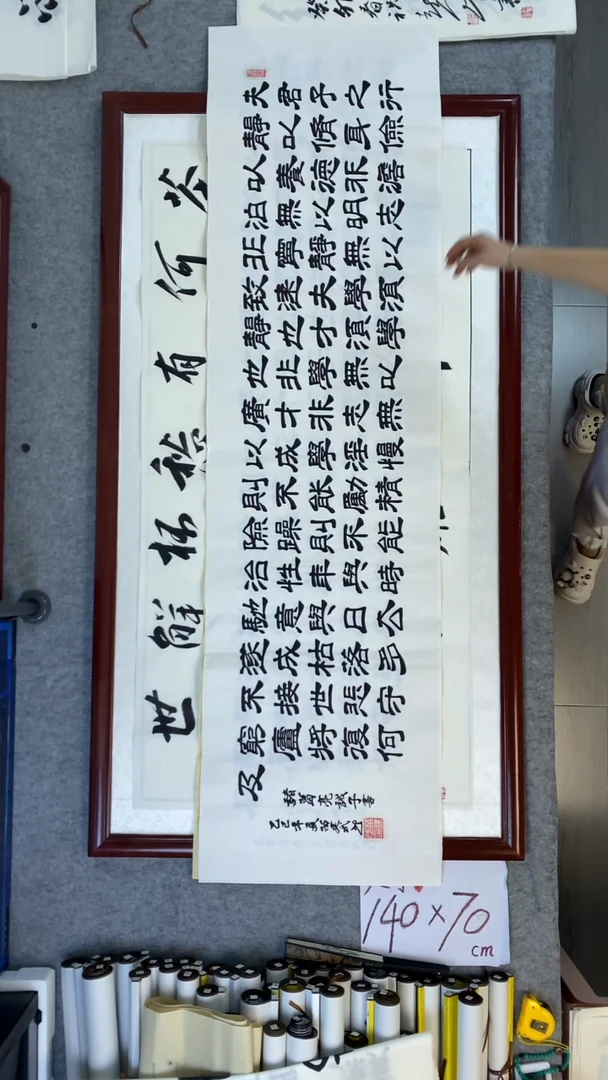 夫君子之行
靜以脩身儉
以養德非澹
泊無以明志
非寧靜無以
致遠夫學須
靜也才須學
也非學無以
廣才非志無
以成學淫慢
則不能勵精
險躁則不能
治性年與時
馳意與日去
遂成枯落多
不接世悲守
窮廬將復何
及
諸葛亮誡子書
乙巳年夏
何有
杯解世
140×70
cm